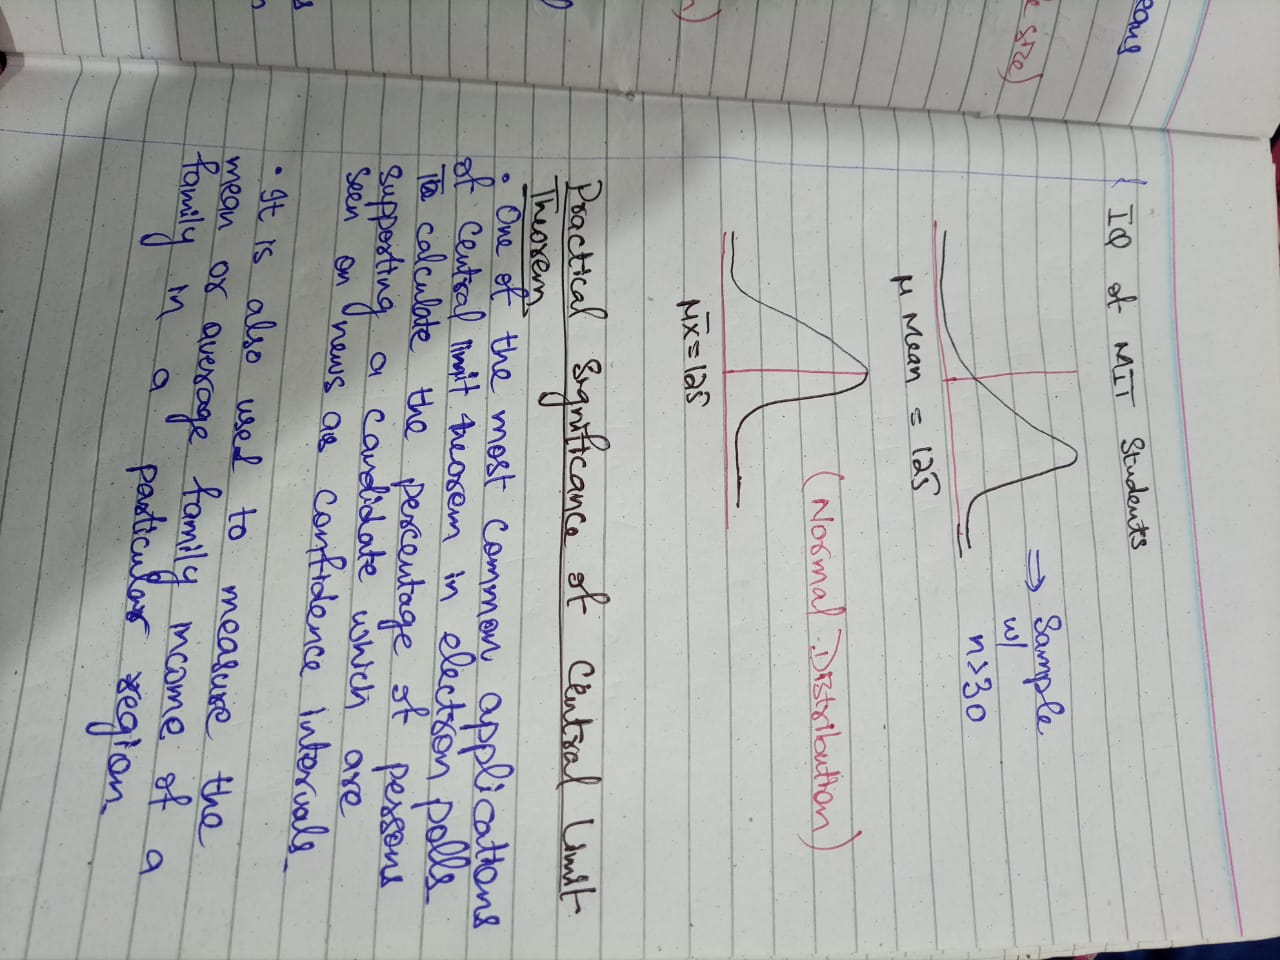 eans
e size)
IQ of MIT Students
⇒ Sample
w/
n>30
μ Mean = 125
(Normal Distribution)
μx̄ = 125
Practical Significance of Central Limit
Theorem
• One of the most common applications
of central limit theorem in election polls
To calculate the percentage of persons
supporting a candidate which are
seen on news as confidence intervals.
• It is also used to measure the
mean or average family income of a
family in a particular region.